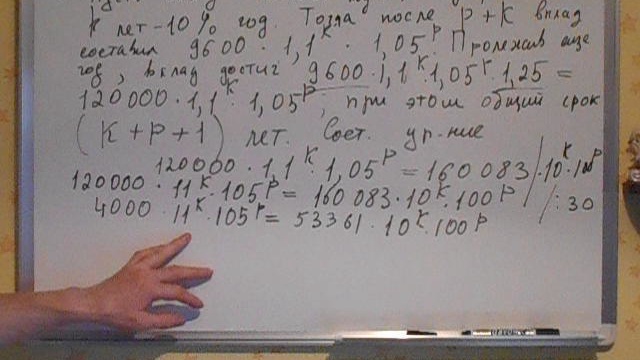 К лет - 10% год. Тогда после p + K вклад
составил 9600 · 1,1^K · 1,05^p. Пролежав еще
год, вклад достиг 9600 · 1,1^K · 1,05^K · 1,25 =
120000 · 1,1^K · 1,05^p, при этом общий срок
(K + p + 1) лет. Сост. ур-ние
120000 · 1,1^K · 1,05^p = 160 083 / · 10^K · 100^p
120000 · 11^K · 105^p = 160 083 · 10^K · 100^p / : 30
4000 · 11^K · 105^p = 53361 · 10^K · 100^p